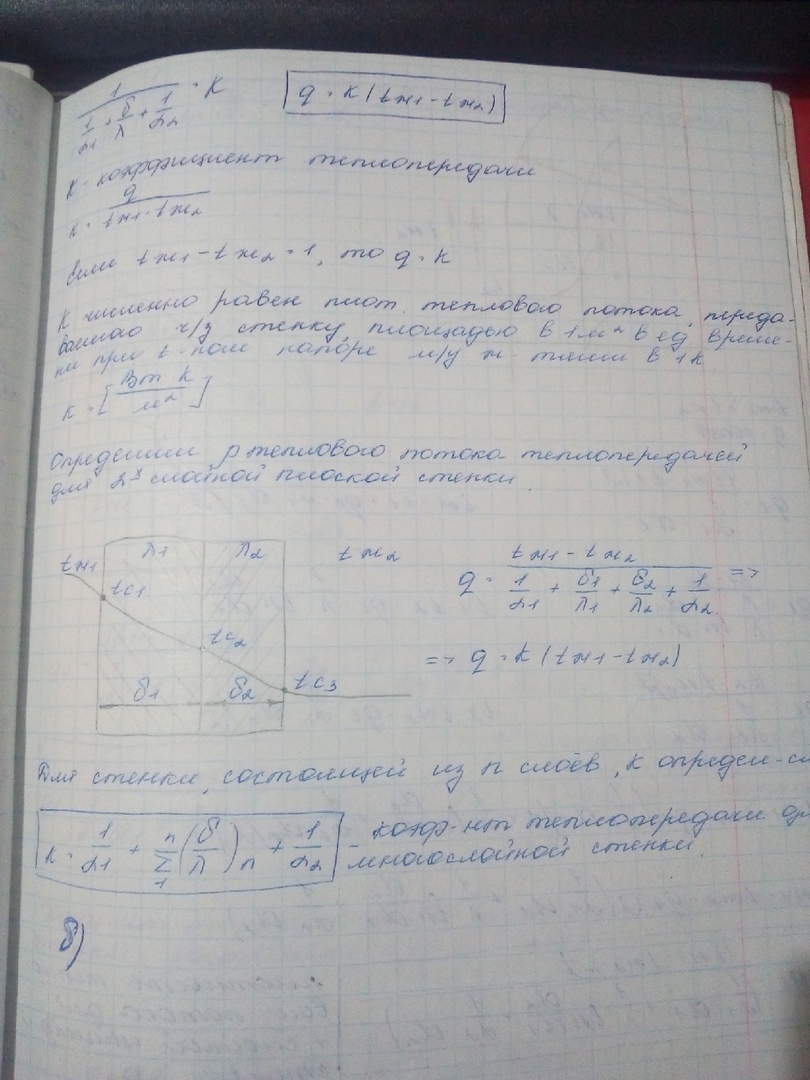 1/(1/α1 + δ/λ + 1/α2) = K
q = K (tж1 - tж2)
K - коэффициент теплопередачи
K = q/(tж1 - tж2)
Если tж1 - tж2 = 1, то q = K
K численно равен плот. теплового потока, переда-
ваемого ч/з стенку площадью в 1м² в ед. време-
ни при t-ном напоре м/у ж-тями в 1К.
K = [Вт К/м²]
Определим р теплового потока теплопередачей
для 2х слойной плоской стенки.
λ1 λ2
tж1 tж2
tc1
tc2
tc3
δ1 δ2
q = (tж1 - tж2)/(1/α1 + δ1/λ1 + δ2/λ2 + 1/α2) =>
=> q = K (tж1 - tж2)
Для стенки, состоящей из n слоёв, K определ-ся
K = 1/α1 + n Σ 1 (δ/λ)n + 1/α2 - коэф-нт теплопередачи
многослойной стенки.
б)